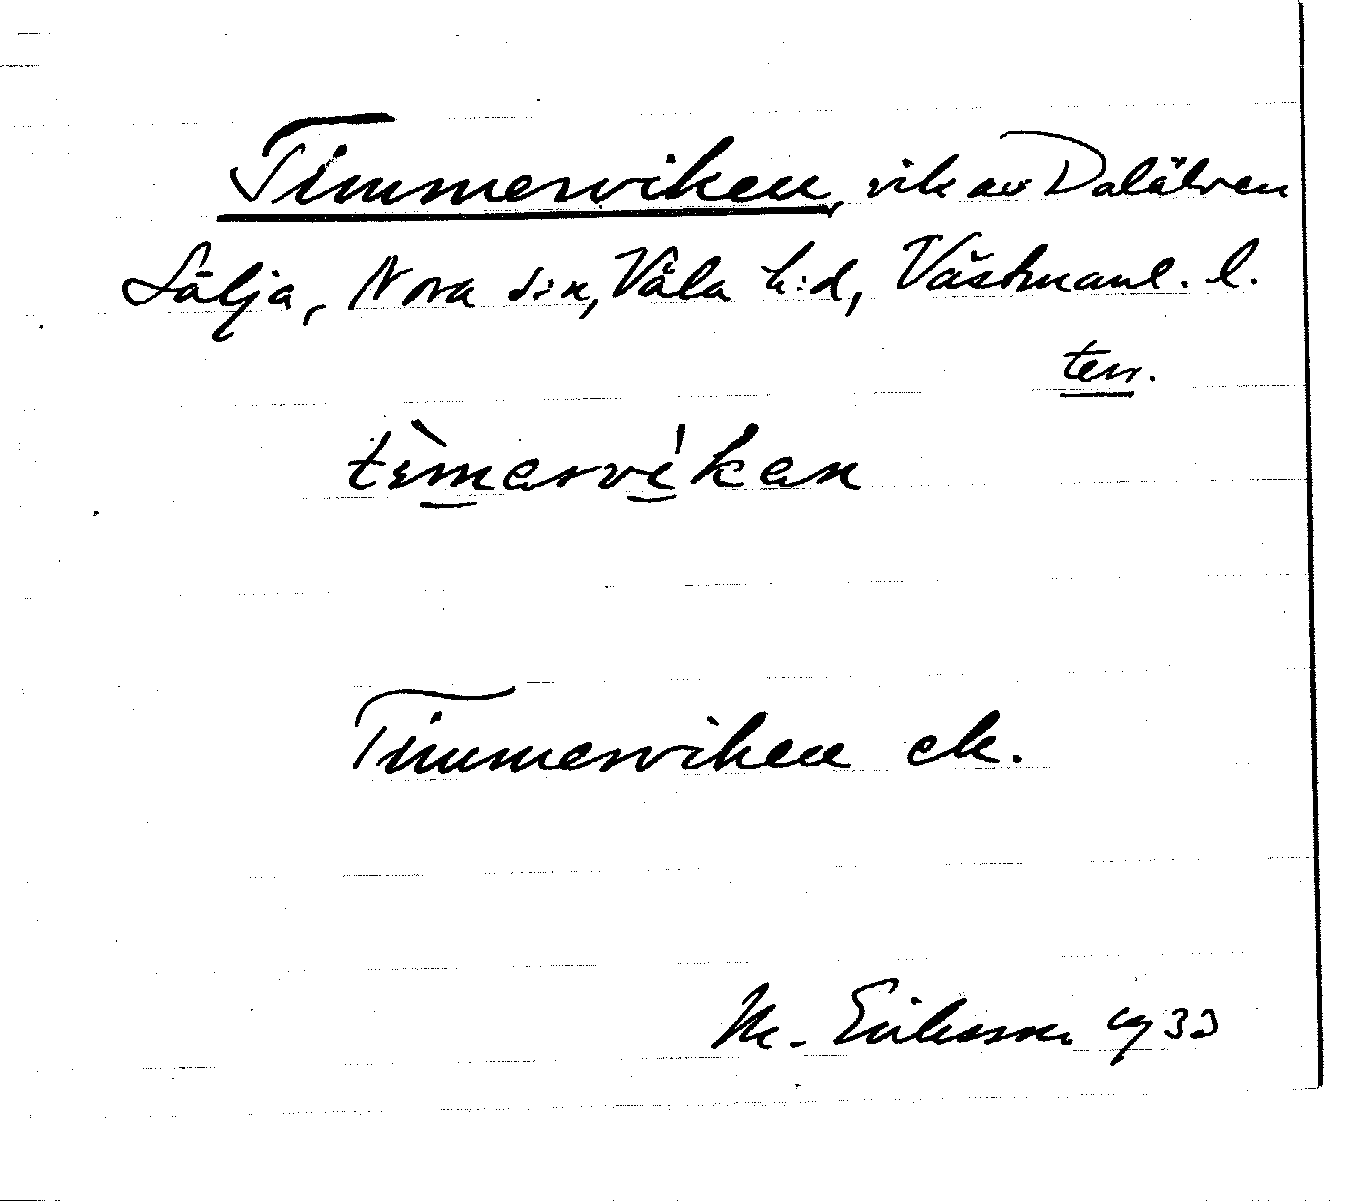 Timmerviken, vik av Dalälven
Sälja, Nora s:n, Våla h:d, Västmanl. l.
terr.
tìmərvíkən
Timmerviken ek.
M. Eriksson 1933